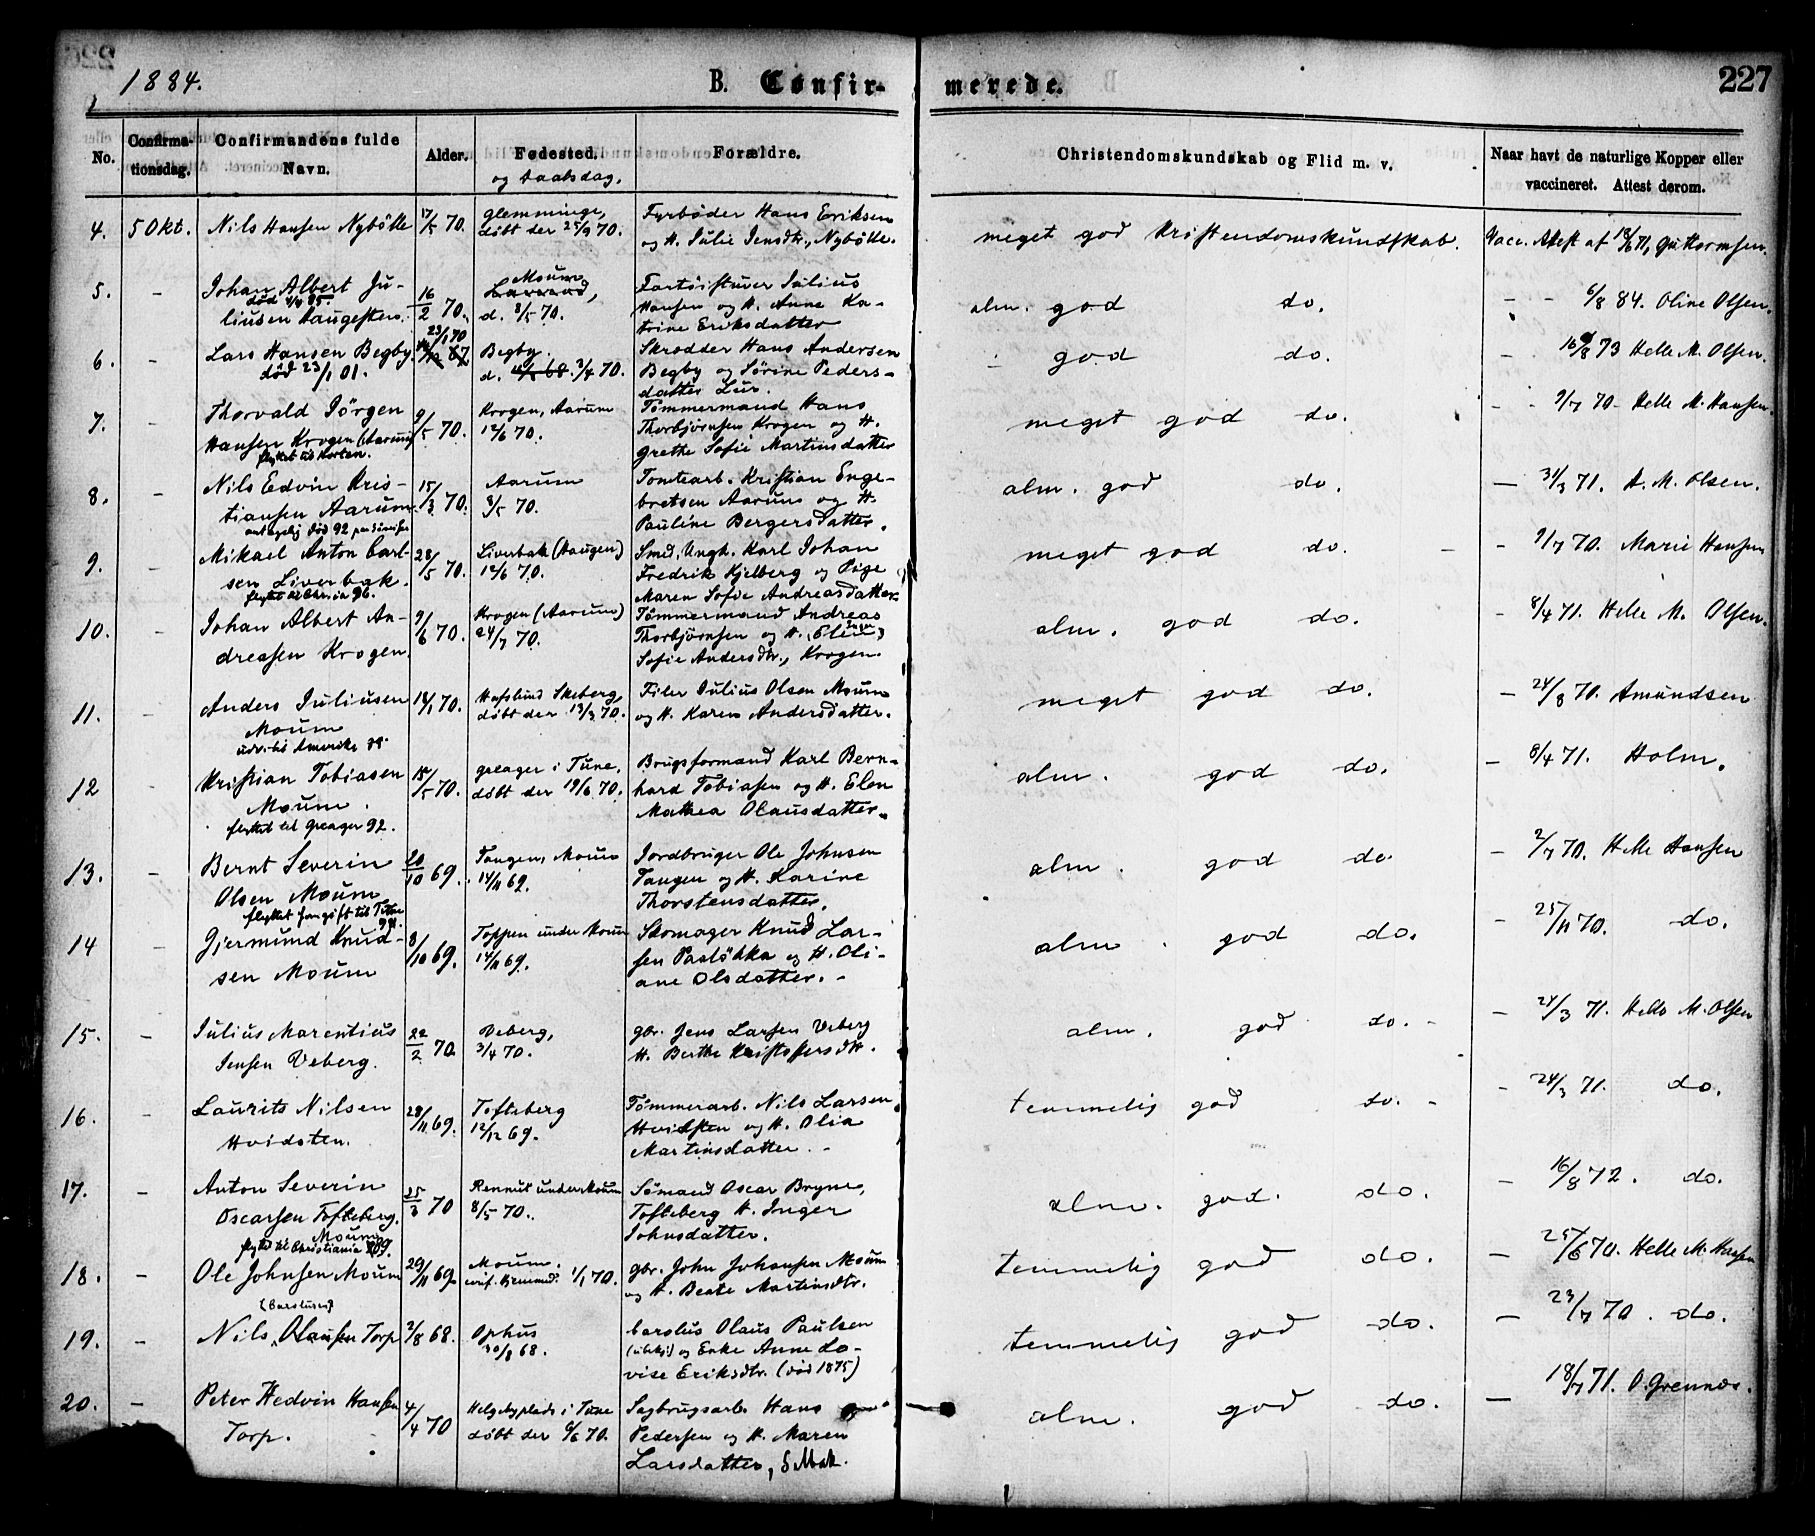 1884.
B. Confirmerede.
227
No.
Confirmationsdag.
Confirmandens fulde Navn.
Alder.
Fødested.
og Daabsdag.
Forældre.
Christendomskundskab og Flid m. v.
Naar havt de naturlige Kopper eller
vaccineret. Attest derom.
4. 5 Okt. Nils Hansen Nybölle 17/5 70. Glemminge, døbt der 25/9 70.
Fyrbøder Hans Eriksen
og H. Julie Jensdtr., Nybölle.
meget god Kristendomskundskab.
Vacc. Attest af 18/6 71,
5. - Johan Albert Ju-
liusen Haugesten. 16/2 70.
Moum
d. 8/5 70.
Julius
Hansen og H. Anne Ka-
trine Eriksdatter
alm. god do.
- - 6/8 84. Oline Olsen.
6. - Lars Hansen Begby. 23/1 70
død 23/1 01.
Begby.
3/4 70.
Skrædder Hans Andersen
Begby og Sørine Peders-
datter Lur.
god do.
73 Helle M. Olsen.
7. - Thorvald Jörgen
Hansen Krogen (Aarum) 9/5 70.
flyttet til Horten.
Krogen, Aarum
12/6 70.
Tømmermand Hans
Thorbjørnsen Krogen og H.
Grethe Sofie Martinsdatter
meget god do.
- - 9/7 70 - Helle M. Hansen.
8. - Nils Edvin Kris-
tiansen Aarum. 15/3 70.
Aarum
8/5 70.
Tomtearb. Kristian Enge-
bretsen Aarum og H.
Pauline Bergersdatter.
alm. god do.
- 31/3 71. H. M. Olsen.
9. - Mikael Anton Carl-
sen Liverbak. 28/5 70.
Liverbak (Haugen)
12/6 70.
Smed, Ungk. Karl Johan
Fredrik Kjelberg og Pige
Maren Sofie Andreasdatter
meget god do.
- - 9/7 70. Marie Hansen
10. - Johan Albert An-
dreasen Krogen. 9/6 70.
Krogen (Aarum)
24/7 70.
Tømmermand Andreas
Thorbjørnsen og H.
Sofie Andersdtr., Krogen.
alm. god do.
- 8/4 71. Helle M. Olsen.
11. - Anders Juliusen 18/1 70.
Moum
udv. til Amerika
Hafslund Skeberg,
døbt der 13/3 70.
Filer Julius Olsen Moum
og H. Karen Andersdatter.
meget god do.
- 24/8 70. Amundsen
12 - Kristian Tobiasen 15/5 70.
Moum.
flyttet til Greager 92.
Greager i Tune,
døbt der 19/6 70.
Brugsformand Karl Bern-
hard Tobiasen og H. Elen
Mathea Olausdatter.
alm. god do.
- 8/4 71. Holm.
13. - Bernt Severin
Olsen Moum 20/10 69.
Tangen, Moum
14/11 69.
Jordbruger Ole Johnsen
Tangen og H. Karine
Thorstensdatter.
alm. god do
- 2/7 70. Helle Hansen
14 - Gjermund Knud-
sen Moum 8/10 69.
Toppen under Moum
14/11 69.
Skomager Knud Lar-
sen og H. Oli-
ane Olsdatter. -
alm. god do.
- 25/11 70. do.
15. - Julius Marentius
Jensen Veberg. 22/2 70
Veberg,
3/4 70.
Gbr. Jens Larsen Veberg
H. Berthe Kristofersdtr.
alm. god do. -
- 24/3 71. Helle M. Olsen
16. - Laurits Nilsen
Hvidsten. 28/11 69.
Tofteberg
12/12 69.
Tømmerarb. Nils Larsen
Hvidsten og H. Olia
Martinsdatter. -
temmelig god do. -
- 24/3 71. do.
17. - Anton Severin
Oscarsen Tofteberg. 25/3 70
Moum
flyttet til Christiania
under Moum
8/5 70.
Sømand Oscar Bryne,
Tofteberg H. Inger
Johnsdatter.
alm. god. do.
- 16/8 72. do.
18. - Ole Johnsen Moum 29/11 69.
Moum.
1/1 70.
Gbr. John Johansen Moum
og H. Beate Martinsdtr.
temmelig god do.
- 25/6 70. Helle M. Hansen
19. - Nils Olausen Torp 2/8 68.
(Carolusen)
Ophus
30/8 68.
Carolus Olaus Paulsen
og Enke Anne Lo-
vise Eriksdtr. (død 1875)
temmelig god do.
- 23/7 70. do.
20. - Peter Hedvin Hansen
Torp. 4/4 70
Helgebyplads i Tune
døbt der 6/6 70.
Sagbrugsarb. Hans
Pedersen og H. Maren
Larsdatter,
alm. god do.
- 18/7 71. O. Grennæs.